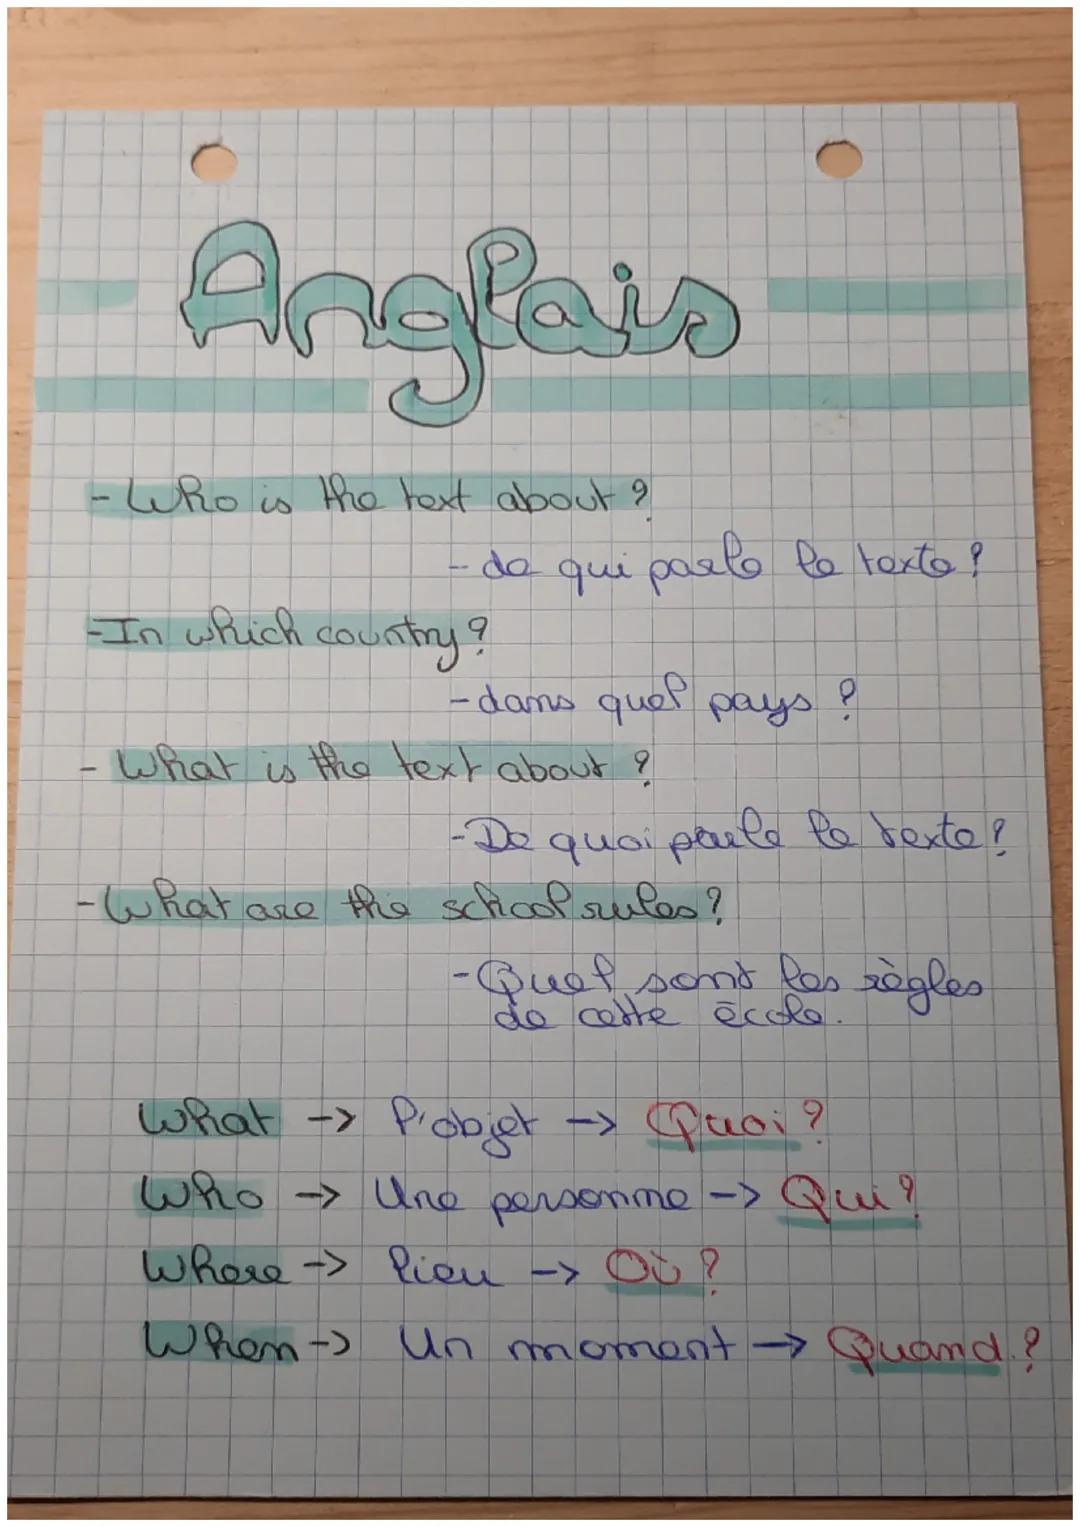 Anglais
- Who is the text about ?
- de qui parle le texte ?
- In which country ?
- dans quel pays ?
- What is the text about ?
- De quoi parle le texte ?
- What are the school rules ?
- Quel sont les règles
de cette école.
What -> l'objet -> Quoi ?
Who -> Une personne -> Qui ?
Where -> lieu -> Où ?
When -> Un moment -> Quand ?